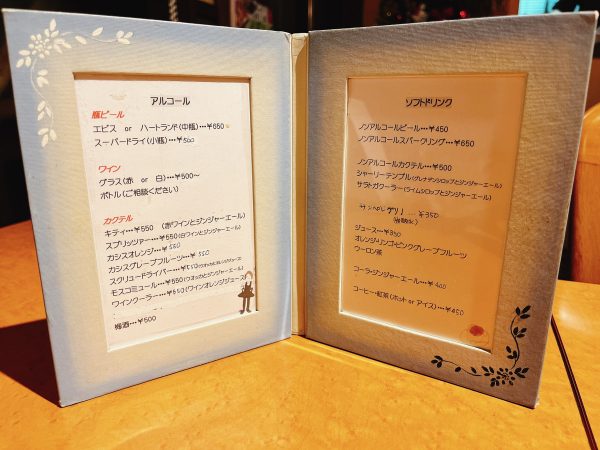 アルコール
瓶ビール
エビス or ハートランド(中瓶)…¥650
スーパードライ(小瓶)…¥500
ワイン
グラス(赤 or 白)…¥500～
ボトル(ご相談ください)
カクテル
キティ…¥550 (赤ワインとジンジャーエール)
スプリッツァー…¥550(白ワインとジンジャーエール)
カシスオレンジ…¥550
カシスグレープフルーツ…¥550
スクリュードライバー…¥550(ウオッカとオレンジジュース)
モスコミュール…¥550(ウオッカとジンジャーエール)
ワインクーラー…¥550(ワインオレンジジュース)
梅酒…¥500
ソフトドリンク
ノンアルコールビール…¥450
ノンアルコールスパークリング…¥650
ノンアルコールカクテル…¥500
シャーリーテンプル(グレナデンシロップとジンジャーエール)
サラトガクーラー(ライムシロップとジンジャーエール)
サンペレグリノ…¥350
ジュース…¥350
オレンジ・リンゴ・ピンクグレープフルーツ
ウーロン茶
コーラ・ジンジャーエール…¥400
コーヒー・紅茶(ホット or アイス)…¥450